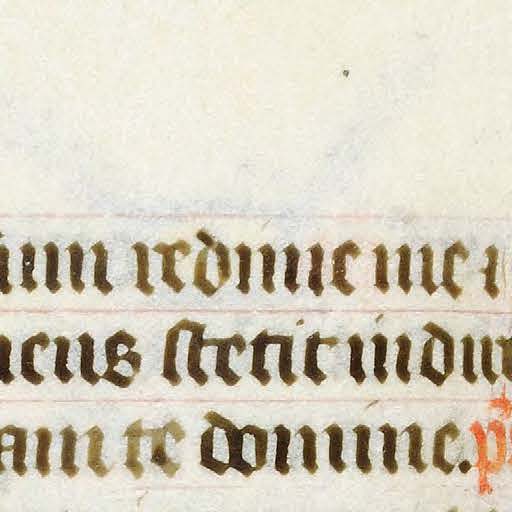 um redime me
meus stetit in dir
am te domine. ps